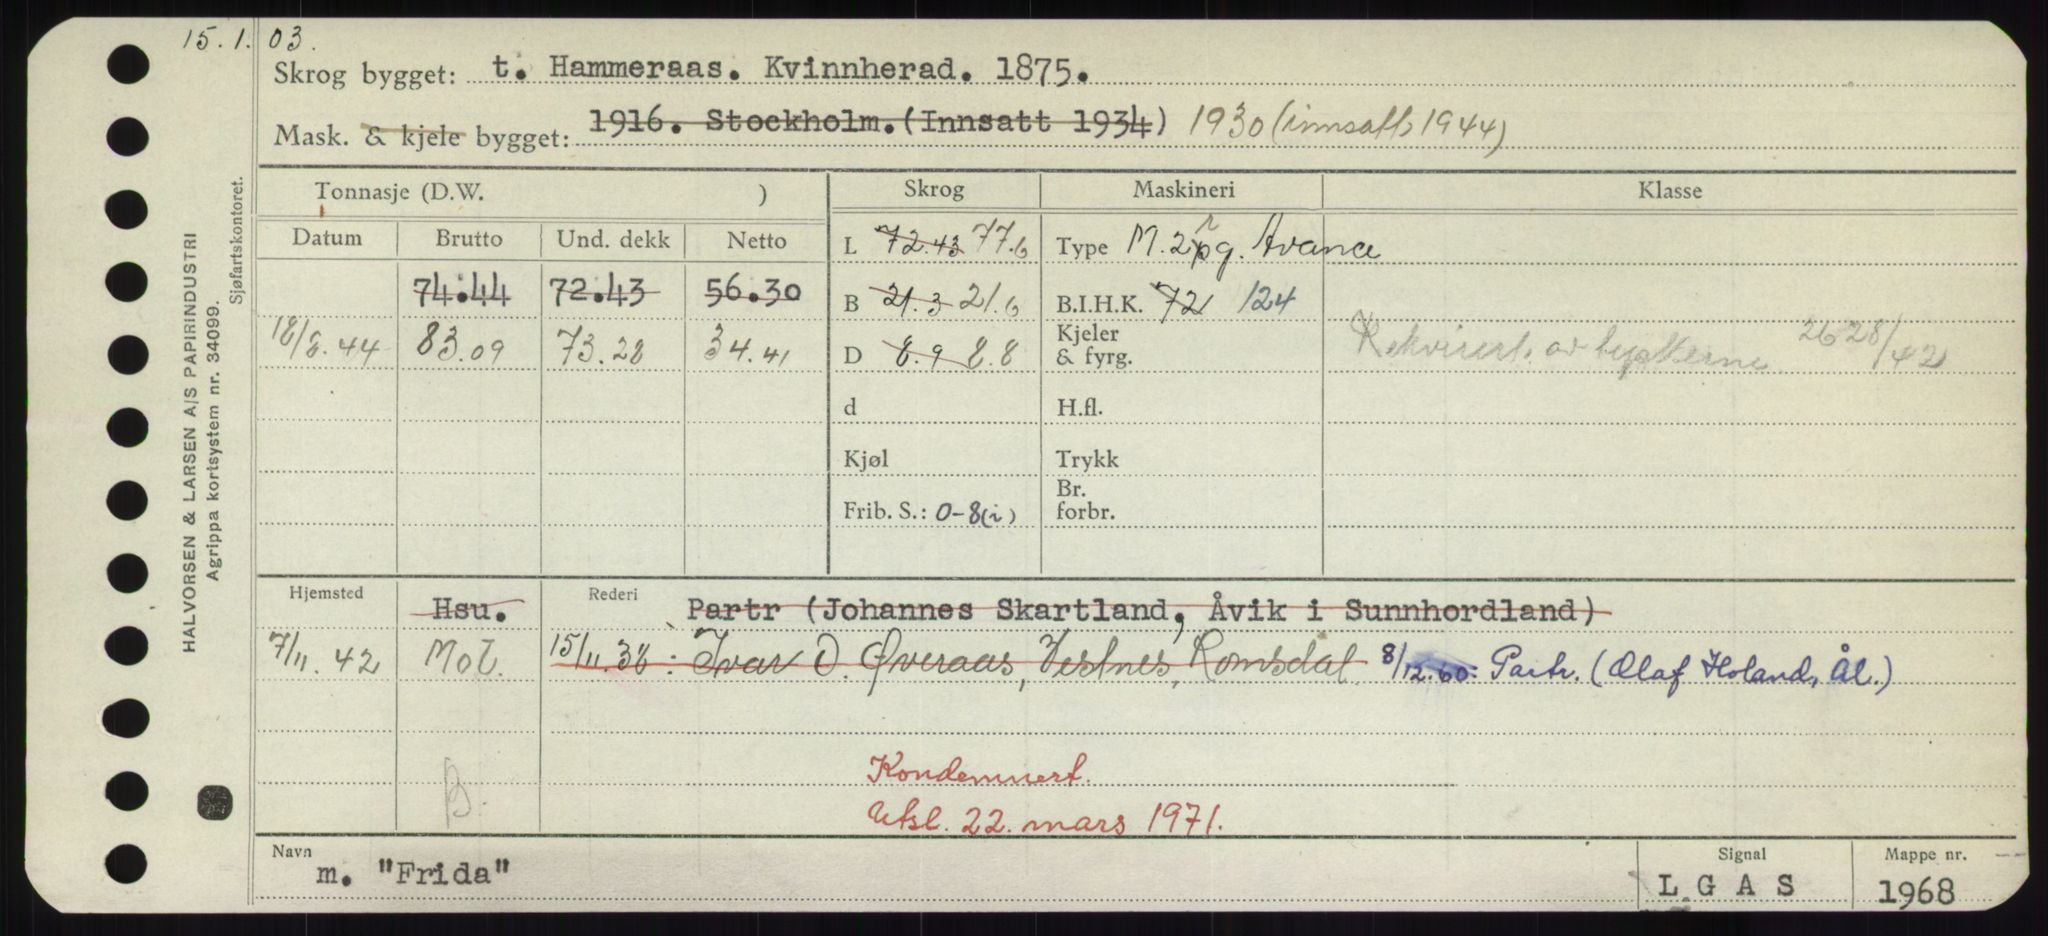 15.1.03.
Skrog bygget: t. Hammeraas. Kvinnherad. 1875.
Mask. & kjele bygget: 1916. Stockholm. (Innsatt 1934) 1930 (innsatt 1944)
Tonnasje (D.W. ) Skrog Maskineri Klasse
Datum Brutto Und. dekk Netto L 72.43 77.6 Type M. 2 pg. Avance
74.44 72.43 56.30 B 21.3 21.6 B.I.H.K. 72 124
18/8.44 83.09 73.28 34.41 D 8.9 8.8 Kjeler & fyrg. Rekvirert av tyskerne 2628/42
d H.fl.
Kjøl Trykk
Frib. S.: 0-8(i) Br. forbr.
Hjemsted Hsu. Rederi Partr (Johannes Skartland, Åvik i Sunnhordland)
7/11.42 Mol. 15/11.38: Ivar O. Øveraas, Vestnes, Romsdal 8/12.60: Partr. (Olaf Holand, Ål.)
Kondemnert.
B. Utsl. 22. mars 1971.
Navn m. "Frida" Signal L G A S Mappe nr. 1968
HALVORSEN & LARSEN A/S PAPIRINDUSTRI
Agrippa kortsystem nr. 34099.
Sjøfartskontoret.